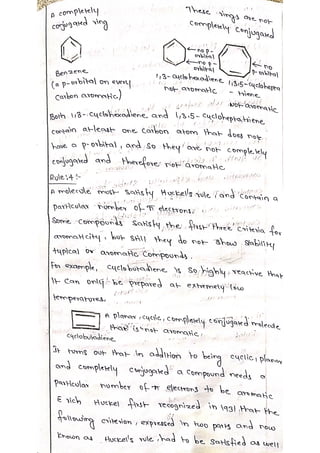 A completely
conjugated ring
These rings are not
completely conjugated
no p-
orbital
no p-
orbital
no
p-orbital
Benzene
(a p-orbital on every
carbon aromatic)
1,3-cyclohexadiene
not aromatic
1,3,5-cyclohepta
- triene
Not aromatic
Both 1,3-cyclohexadiene and 1,3,5-cycloheptatriene
contain at-least one carbon atom that does not
have a p-orbital, and so they are not completely
conjugated and therefore not aromatic.
Rule:4:-
A molecule must satisfy Huckel's rule, and contain a
particular number of π electrons.
Some compounds satisfy the first three criteria for
aromaticity, but still they do not show stability
typical of aromatic compounds.
For example, cyclobutadiene is so highly reactive that
it can only be prepared at extremely low
temperatures.
A planar, cyclic, completely conjugated molecule
that is not aromatic.
Cyclobutadiene
It turns out that in addition to being cyclic, planar
and completely conjugated a compound needs a
particular number of π electrons to be aromatic
Erich Huckel first recognized in 1931 that the
following criterion, expressed in two parts and now
known as Huckel's rule, had to be satisfied as well